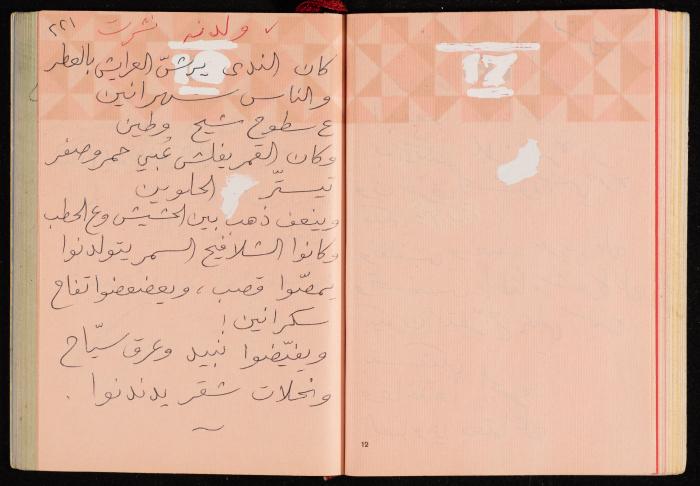 ٢٢١ ولدنه نشرت ✓
كان الندى يرشّ العرايش بالعطر
والناس سهرانين
ع سطوح شيح وطين
وكان القمر يفلش عُبي حمر وصفر
تيستّر الحلوين
وينعف ذهب بين الحشيش وع الحطب
وكانوا الشلافيح السمر يتولدنوا
يمصّوا قصب، ويعضعضوا تفاح
سكرانين!
ويفيّضوا نبيد وعرق سيّاح
ونحلات شقر يدندنوا.
17
12